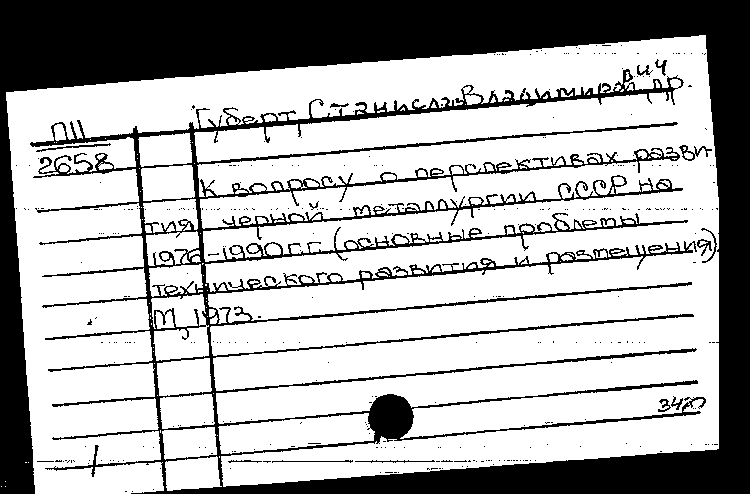 ПII
2658
Губерт, Станислав Владимирович, др.
К вопросу о перспективах разви-
тия черной металлургии СССР на
1976-1990 г.г. (основные проблемы
технического развития и размещения)
М, 1973.